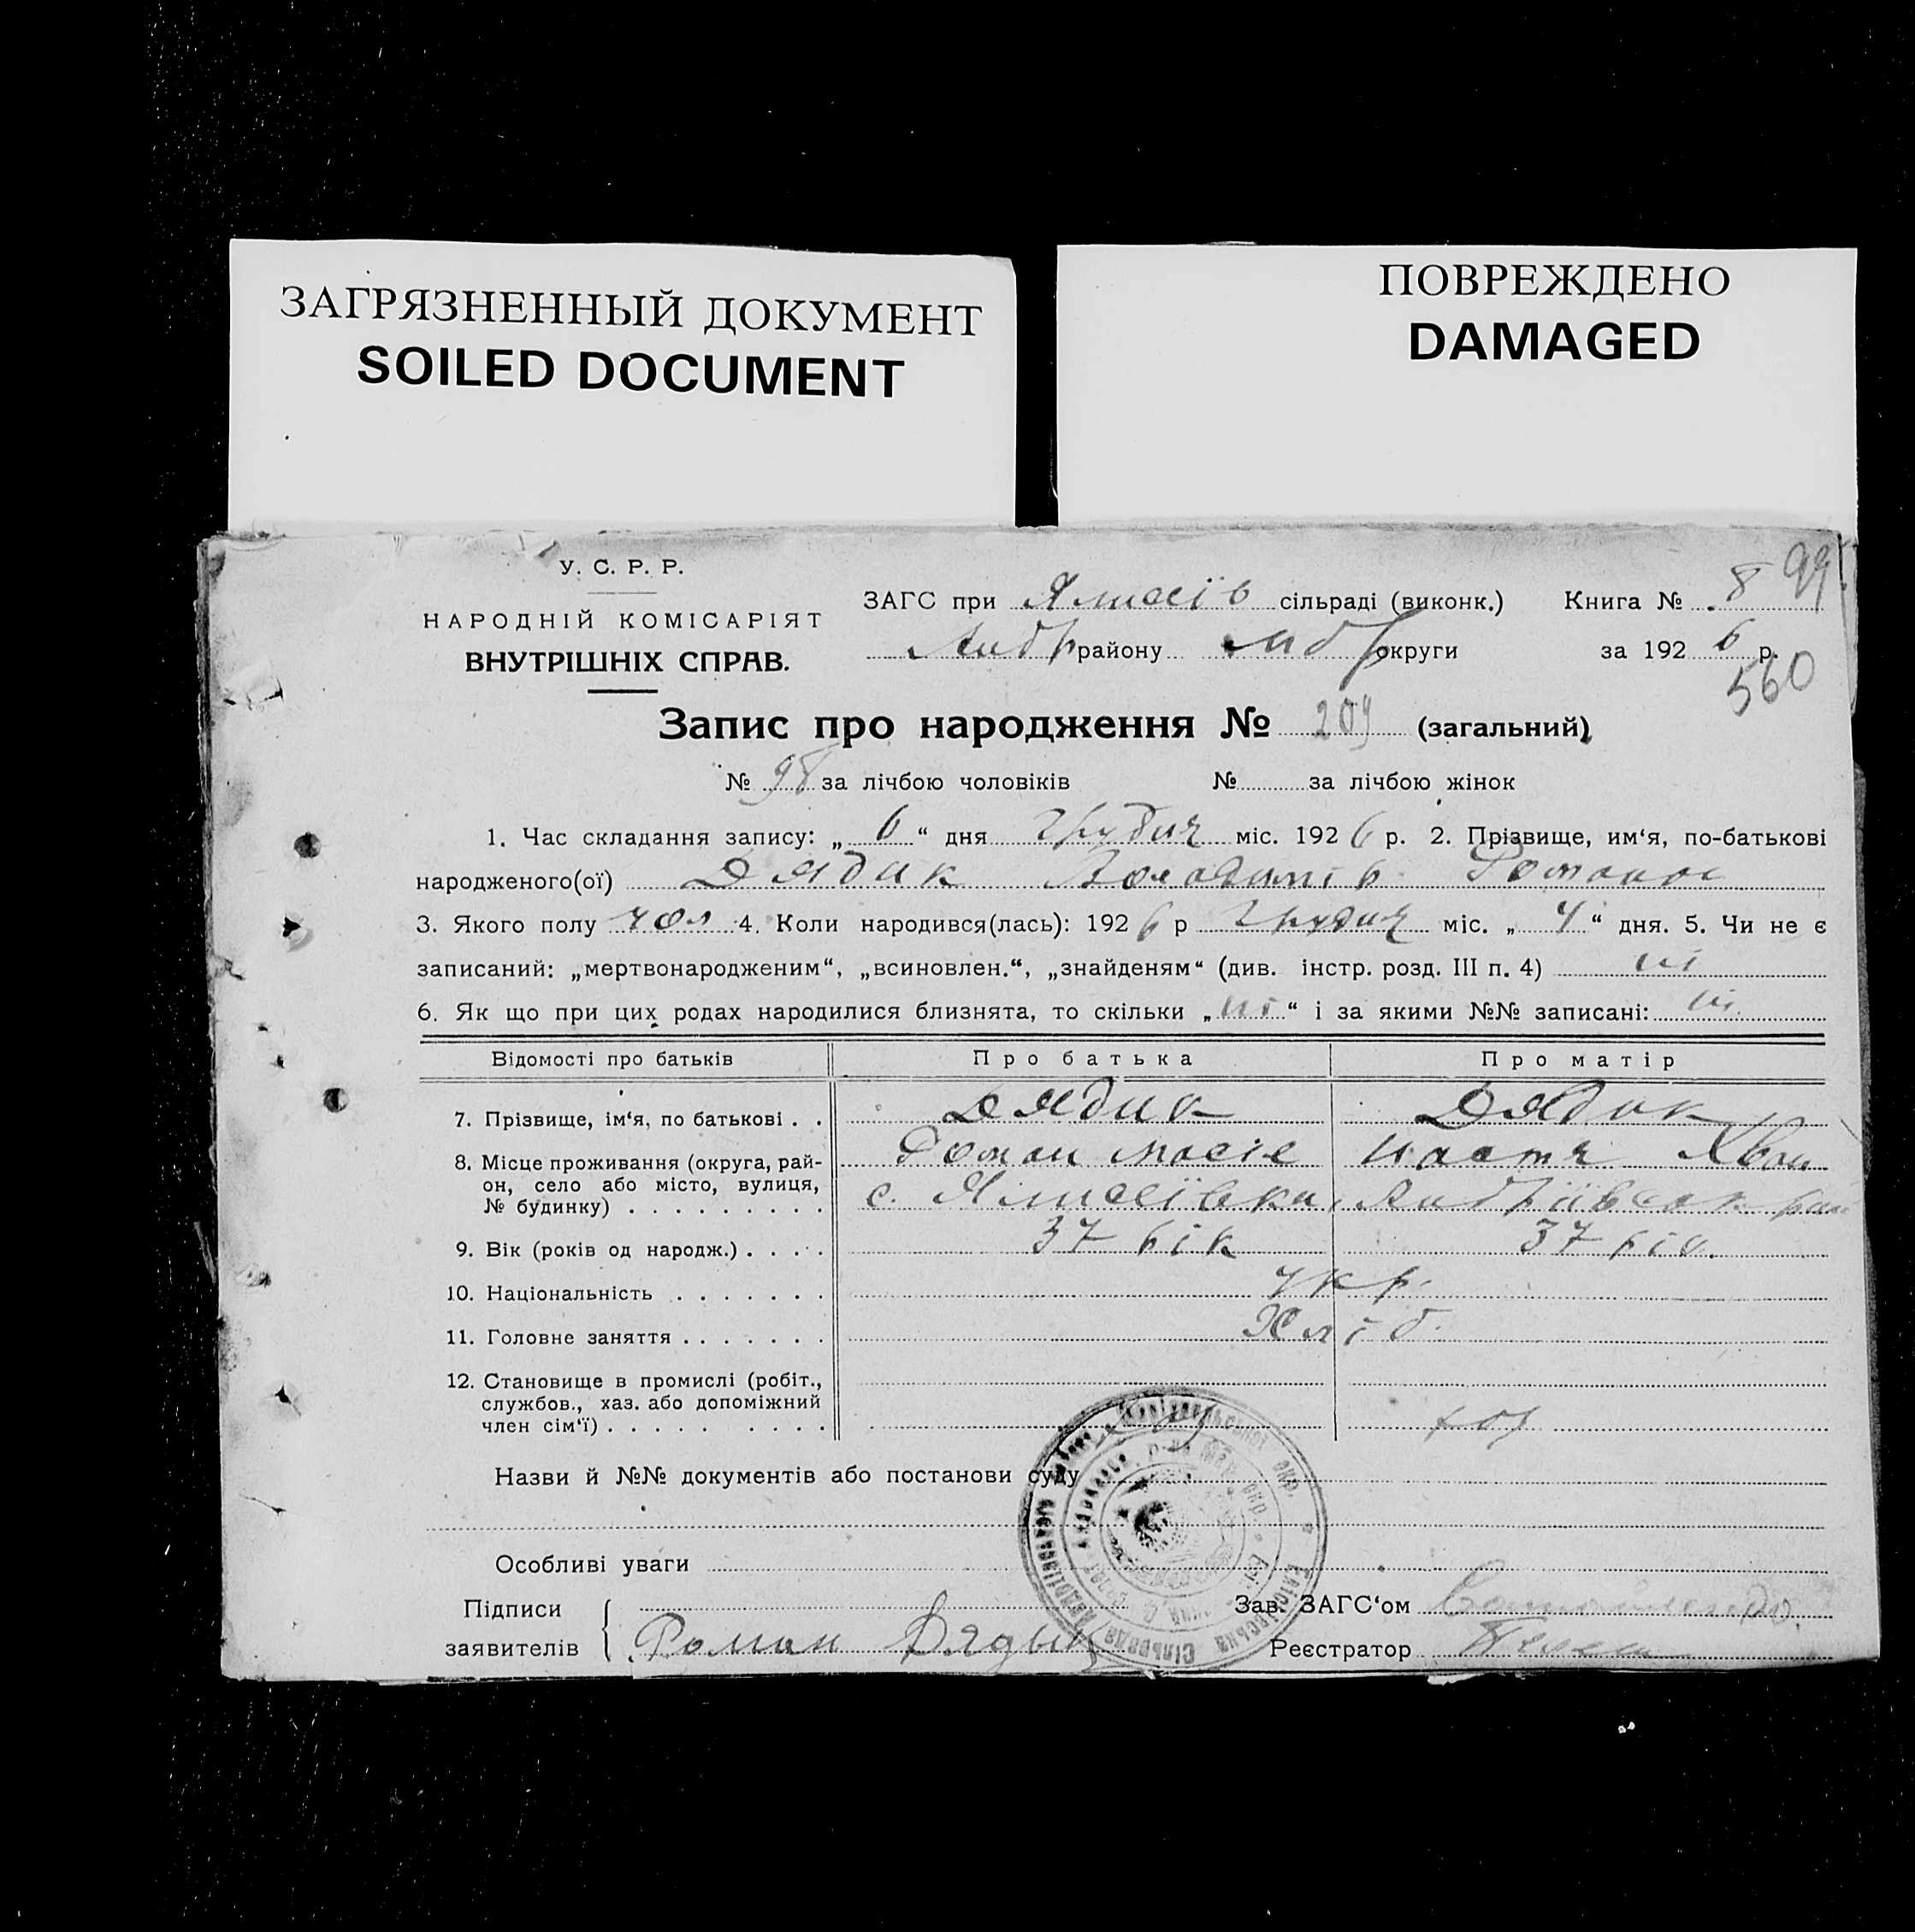 ЗАГРЯЗНЕННЫЙ ДОКУМЕНТ
SOILED DOCUMENT
ПОВРЕЖДЕНО
DAMAGED
У. С. Р. Р.
НАРОДНІЙ КОМІСАРІЯТ
ВНУТРІШНІХ СПРАВ.
ЗАГС при сільраді (виконк.) Книга № 8 99
району округи за 192 6 р.
560
Запис про народження № 209 (загальний)
№ 98 за лічбою чоловіків № за лічбою жінок
1. Час складання запису: „ 6 “ дня Грудня міс. 192 6 р. 2. Прізвище, им‘я, по-батькові
народженого(ої) Дядик Володимір Романов
3. Якого полу чол 4. Коли народився(лась): 192 6 р Грудня міс. „ 4 “ дня. 5. Чи не є
записаний: „мертвонародженим“, „всиновлен.“, „знайденям“ (див. інстр. розд. III п. 4) ні
6. Як що при цих родах народилися близнята, то скільки „ ні “ і за якими №№ записані: ні
Відомості про батьків Про батька Про матір
7. Прізвище, ім‘я, по батькові . . Дядик Дядик
Роман Мосіє Настя Хвен
8. Місце проживання (округа, рай-
он, село або місто, вулиця,
№ будинку) . . . . . . . . . с.
9. Вік (років од народж.) . . . . 37 рік 37 рік.
10. Національність . . . . . . . укр.
11. Головне заняття . . . . . . . Хліб.
12. Становище в промислі (робіт.,
службов., хаз. або допоміжний
член сім‘ї) . . . . . . . . .
Назви й №№ документів або постанови суду
Особливі уваги
Підписи
заявителів Роман Дядык
Зав. ЗАГС‘ом
Реєстратор